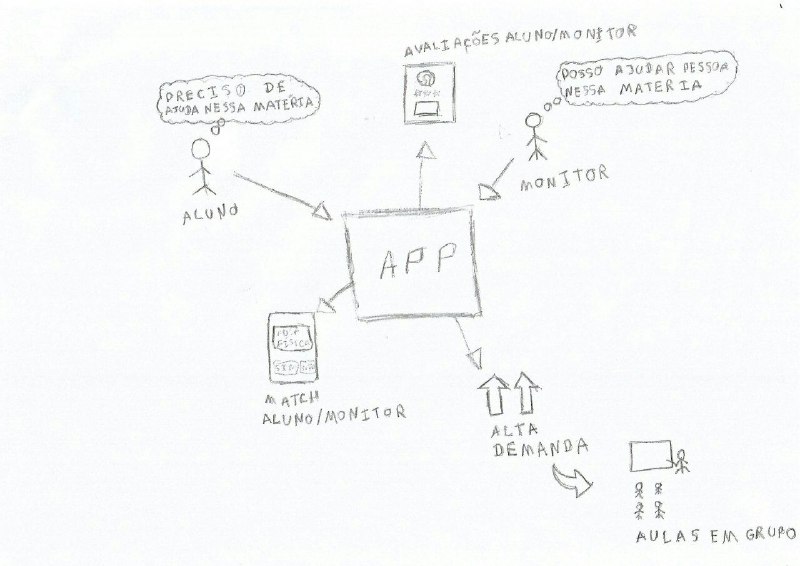 AVALIAÇÕES ALUNO/MONITOR
PRECISO DE
AJUDA NESSA MATERIA
POSSO AJUDAR PESSOA
NESSA MATERIA
ALUNO
MONITOR
APP
FÍSICA
MATCH
ALUNO/MONITOR
ALTA
DEMANDA
AULAS EM GRUPO